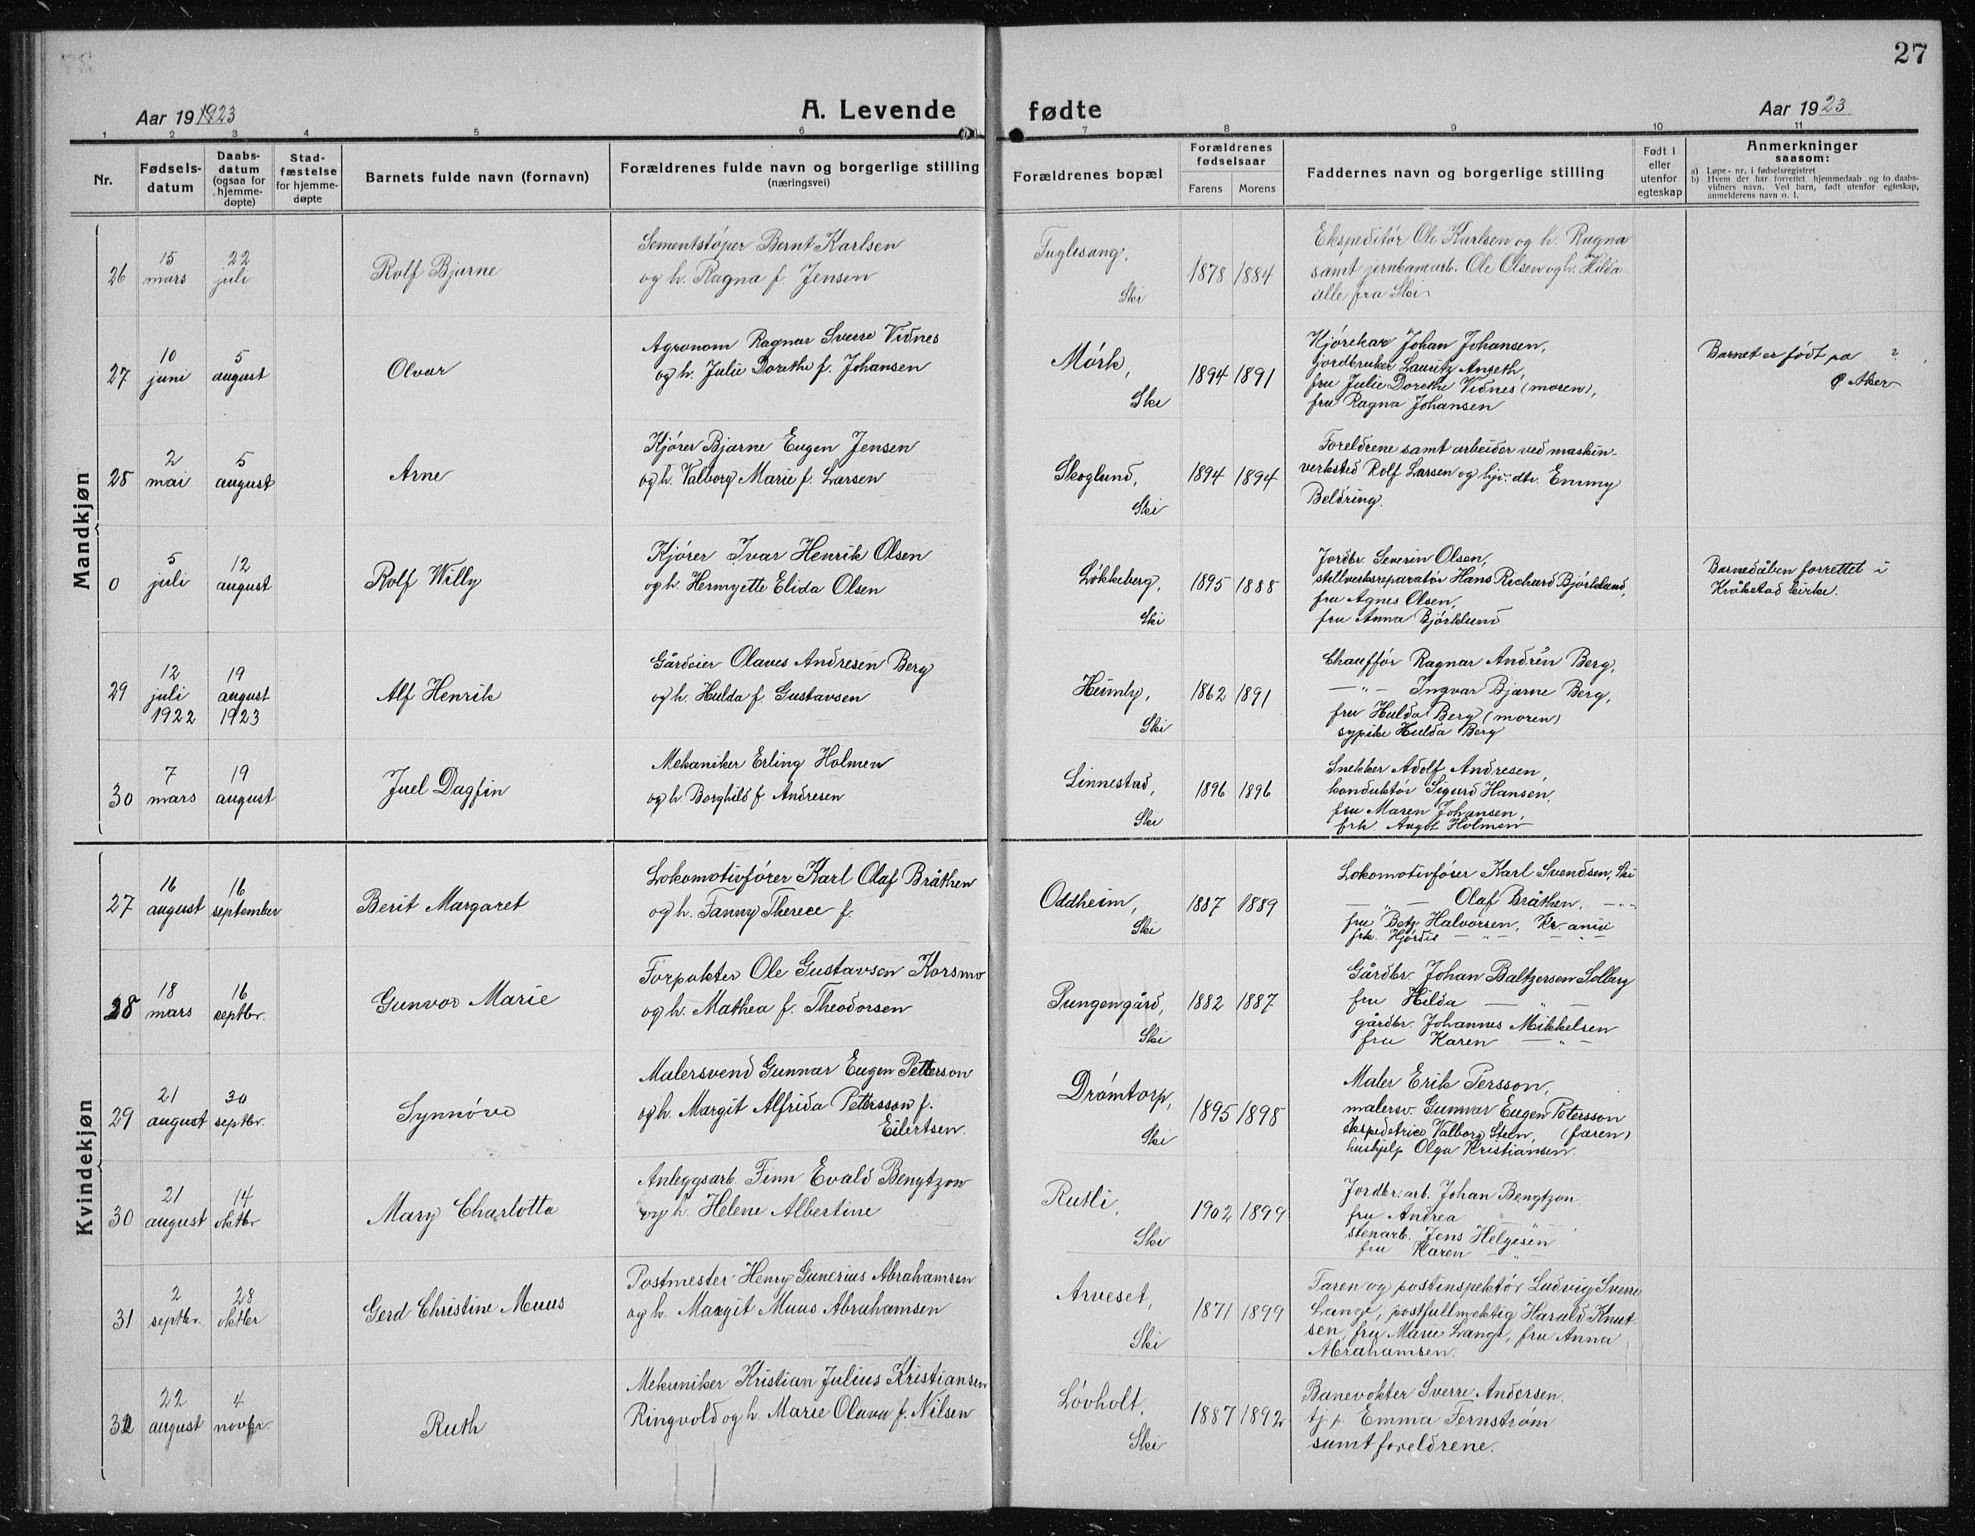 27
Aar 191923
A. Levende fødte
Aar 1923
1 2 3 4 5 6 7 8 9 10 11
Nr.
Fødsels-
datum
Daabs-
datum
(ogsaa for
hjemme-
døpte)
Stad-
fæstelse
for hjemme-
døpte
Barnets fulde navn (fornavn)
Forældrenes fulde navn og borgerlige stilling
(næringsvei)
Forældrenes bopæl
Forældrenes
fødselsaar
Farens Morens
Faddernes navn og borgerlige stilling
Født i
eller
utenfor
egteskap
Anmerkninger
saasom:
a) Løpe-nr. i fødselsregistret
b) Hvem der har forrettet hjemmedaab og to daabs-
vidners navn. Ved barn, født utenfor egteskap,
anmelderens navn o. l.
Mandkjøn
26
15
mars
22
juli
Rolf Bjarne
Sementstøper Bernt Karlsen
og h. Ragna f. Jensen
Fuglesang,
Ski
1878 1884
Ekspeditør Ole Karlsen og h. Ragna
samt jernbanarb. Ole Olsen og h. Hilda
alle fra Ski
27
10
juni
5
august
Olvar
Agronom Ragnar Sverre Vidnes
og h. Julie Dorethe f. Johansen
Mørk,
Ski
1894 1891
Kjørekar Johan Johansen,
jordbruker Lauritz Anseth,
fru Julie Dorethe Vidnes (moren),
fru Ragna Johansen
Barnet er født på ?
Ø Aker
28
2
mai
5
august
Arne
Kjører Bjarne Eugen Jensen
og h. Valborg Marie f. Larsen
Skoglund,
Ski
1894 1894
Foreldrene samt arbeider ved maskin-
verksted Rolf Larsen og hj.dtr. Emmy
Beldring.
0
5
juli
12
august
Rolf Willy
Kjører Ivar Henrik Olsen
og h. Hermyette Elida Olsen
Løkkeberg,
Ski
1895 1888
Jordbr. Severin Olsen,
stillverksreparatør Hans Richard Bjørklund,
fru Agnes Olsen,
fru Anna Bjørklund
Barnedåben forrettet i
Kråkstad kirke.
29
12
juli
1922
19
august
1923
Alf Henrik
Gårdeier Olaves Andresen Berg
og h. Hulda f. Gustavsen
Heimly,
Ski
1862 1891
Chauffør Ragnar Andrèn Berg,
— " — Ingvar Bjarne Berg,
fru Hulda Berg (moren)
sypike Hulda Berg
30
7
mars
19
august
Juel Dagfin
Mekaniker Erling Holmen
og h. Borghild f. Andresen
Linnestad,
Ski
1896 1896
Snekker Adolf Andresen,
konduktør Sigurd Hansen,
fru Maren Johansen,
frk. Aagot Holmen
Kvindekjøn
27
16
august
16
september
Berit Margaret
Lokomotivfører Karl Olaf Bråthen
og h. Fanny Therece f.
Oddheim,
Ski
1887 1889
Lokomotivfører Karl Svendsen, Ski
— " — Olaf Bråthen. — " —
fru Betz. Halvorsen, Kr.ania
frk. Hjørdis — " — — " —
28
18
mars
16
septbr.
Gunvor Marie
Forpakter Ole Gustavsen Korsmo
og h. Mathea f. Theodorsen
Pungengård,
Ski
1882 1887
Gårdbr. Johan Baltzersen Solberg
fru Hilda — " —
gårdbr. Johannes Mikkelsen
fru Karen — " —
29
21
august
30
septbr.
Synnøve
Malersvend Gunnar Eugen Petterson
og h. Margit Alfrida Pettersson f.
Eilertsen.
Drømtorp,
Ski
1895 1898
Maler Erik Persson,
malersv. Gunnar Eugen Petersson
Ekspeditrice Valborg Steen, (faren)
hushjelp Olga Kristiansen.
30
21
august
14
oktbr.
Mary Charlotta
Anleggsarb. Finn Evald Bengtzon
og h. Helene Albertine
Rustli,
Ski
1902 1899
Jordbr.arb. Johan Bengtzon
fru Andrea "
stenarb. Jens Helgesen
fru Karen — " —
31
2
septbr.
28
oktbr
Gerd Christine Muus
Postmester Henry Gunerius Abrahamsen
og h. Margit Muus Abrahamsen
Arveset,
Ski
1871 1899
Faren og postinspektør Ludvig Sverre
Lange, postfullmektig Harald Knut-
sen, fru Marie Lange, fru Anna
Abrahamsen.
32
22
august
4
novbr.
Ruth
Mekaniker Kristian Julius Kristiansen
Ringvold og h. Marie Olava f. Nilsen
Løvholt,
Ski
1887 1892
Banevokter Sverre Andersen,
tj.p. Emma Fernstrøm
samt foreldrene.